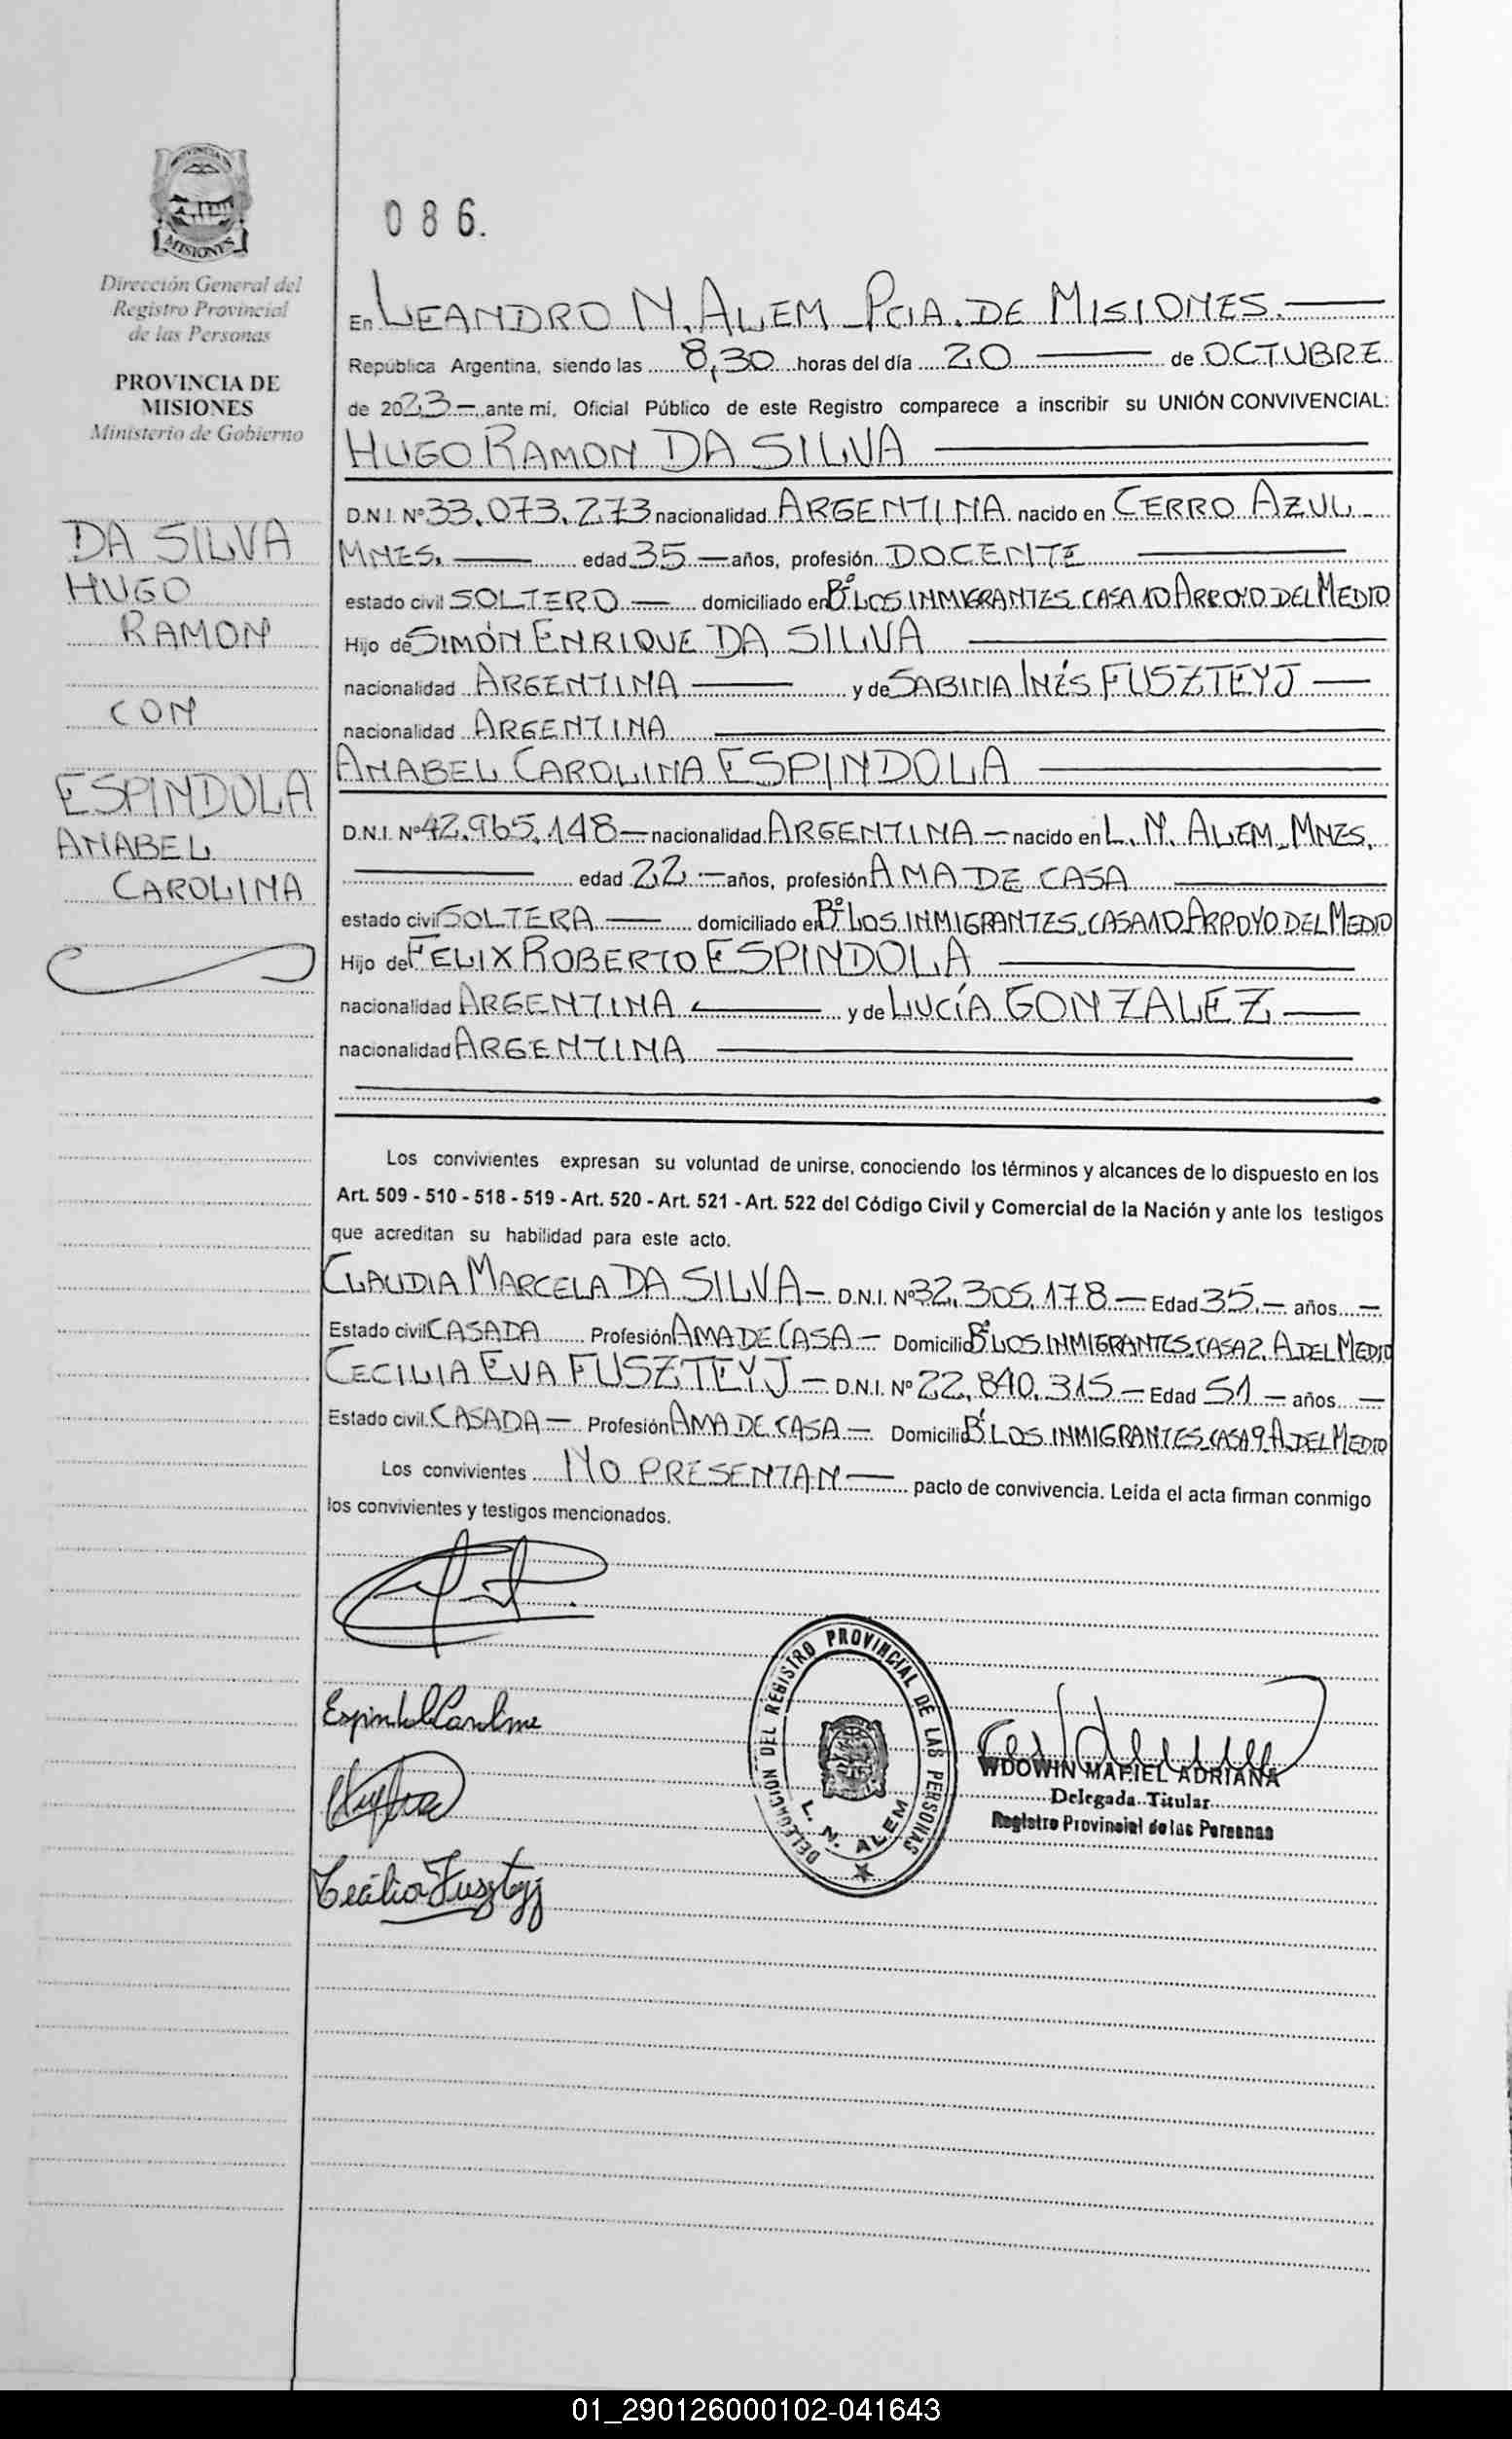 PROVINCIA DE
MISIONES
Dirección General del
Registro Provincial
de las Personas
PROVINCIA DE
MISIONES
Ministerio de Gobierno
DA SILVA
HUGO
RAMON
CON
ESPINDOLA
ANABEL
CAROLINA
086.
En LEANDRO N. ALEM PCIA. DE MISIONES.
República Argentina, siendo las 8,30 horas del día 20 de OCTUBRE
de 2023 ante mí, Oficial Público de este Registro comparece a inscribir su UNIÓN CONVIVENCIAL:
HUGO RAMON DA SILVA
D.N.I. Nº 33.073.273 nacionalidad ARGENTINA nacido en CERRO AZUL
MNES. edad 35 años, profesión DOCENTE
estado civil SOLTERO domiciliado en Bº LOS INMIGRANTES CASA 10 ARROYO DEL MEDIO
Hijo de SIMÓN ENRIQUE DA SILVA
nacionalidad ARGENTINA y de SABINA INÉS FUSZTEYJ
nacionalidad ARGENTINA
ANABEL CAROLINA ESPINDOLA
D.N.I. Nº 42.965.148 nacionalidad ARGENTINA nacido en L. N. ALEM MNES.
edad 22 años, profesión AMA DE CASA
estado civil SOLTERA domiciliado en Bº LOS INMIGRANTES CASA 10 ARROYO DEL MEDIO
Hijo de FELIX ROBERTO ESPINDOLA
nacionalidad ARGENTINA y de LUCÍA GONZALEZ
nacionalidad ARGENTINA
Los convivientes expresan su voluntad de unirse, conociendo los términos y alcances de lo dispuesto en los
Art. 509 - 510 - 518 - 519 - Art. 520 - Art. 521 - Art. 522 del Código Civil y Comercial de la Nación y ante los testigos
que acreditan su habilidad para este acto.
CLAUDIA MARCELA DA SILVA D.N.I. Nº 32.305.178 Edad 35 años
Estado civil CASADA Profesión AMA DE CASA Domicilio Bº LOS INMIGRANTES CASA 2. A. DEL MEDIO
CECILIA EVA FUSZTEYJ D.N.I. Nº 22.840.315 Edad 51 años
Estado civil CASADA Profesión AMA DE CASA Domicilio Bº LOS INMIGRANTES CASA 9 A. DEL MEDIO
Los convivientes NO PRESENTAN pacto de convivencia. Leída el acta firman conmigo
los convivientes y testigos mencionados.
DELEGACION DEL REGISTRO PROVINCIAL DE LAS PERSONAS
L. N. ALEM
WDOWIN MARIEL ADRIANA
Delegada Titular
Registro Provincial de las Personas
Cecilia Fuszteyj
01_290126000102-041643